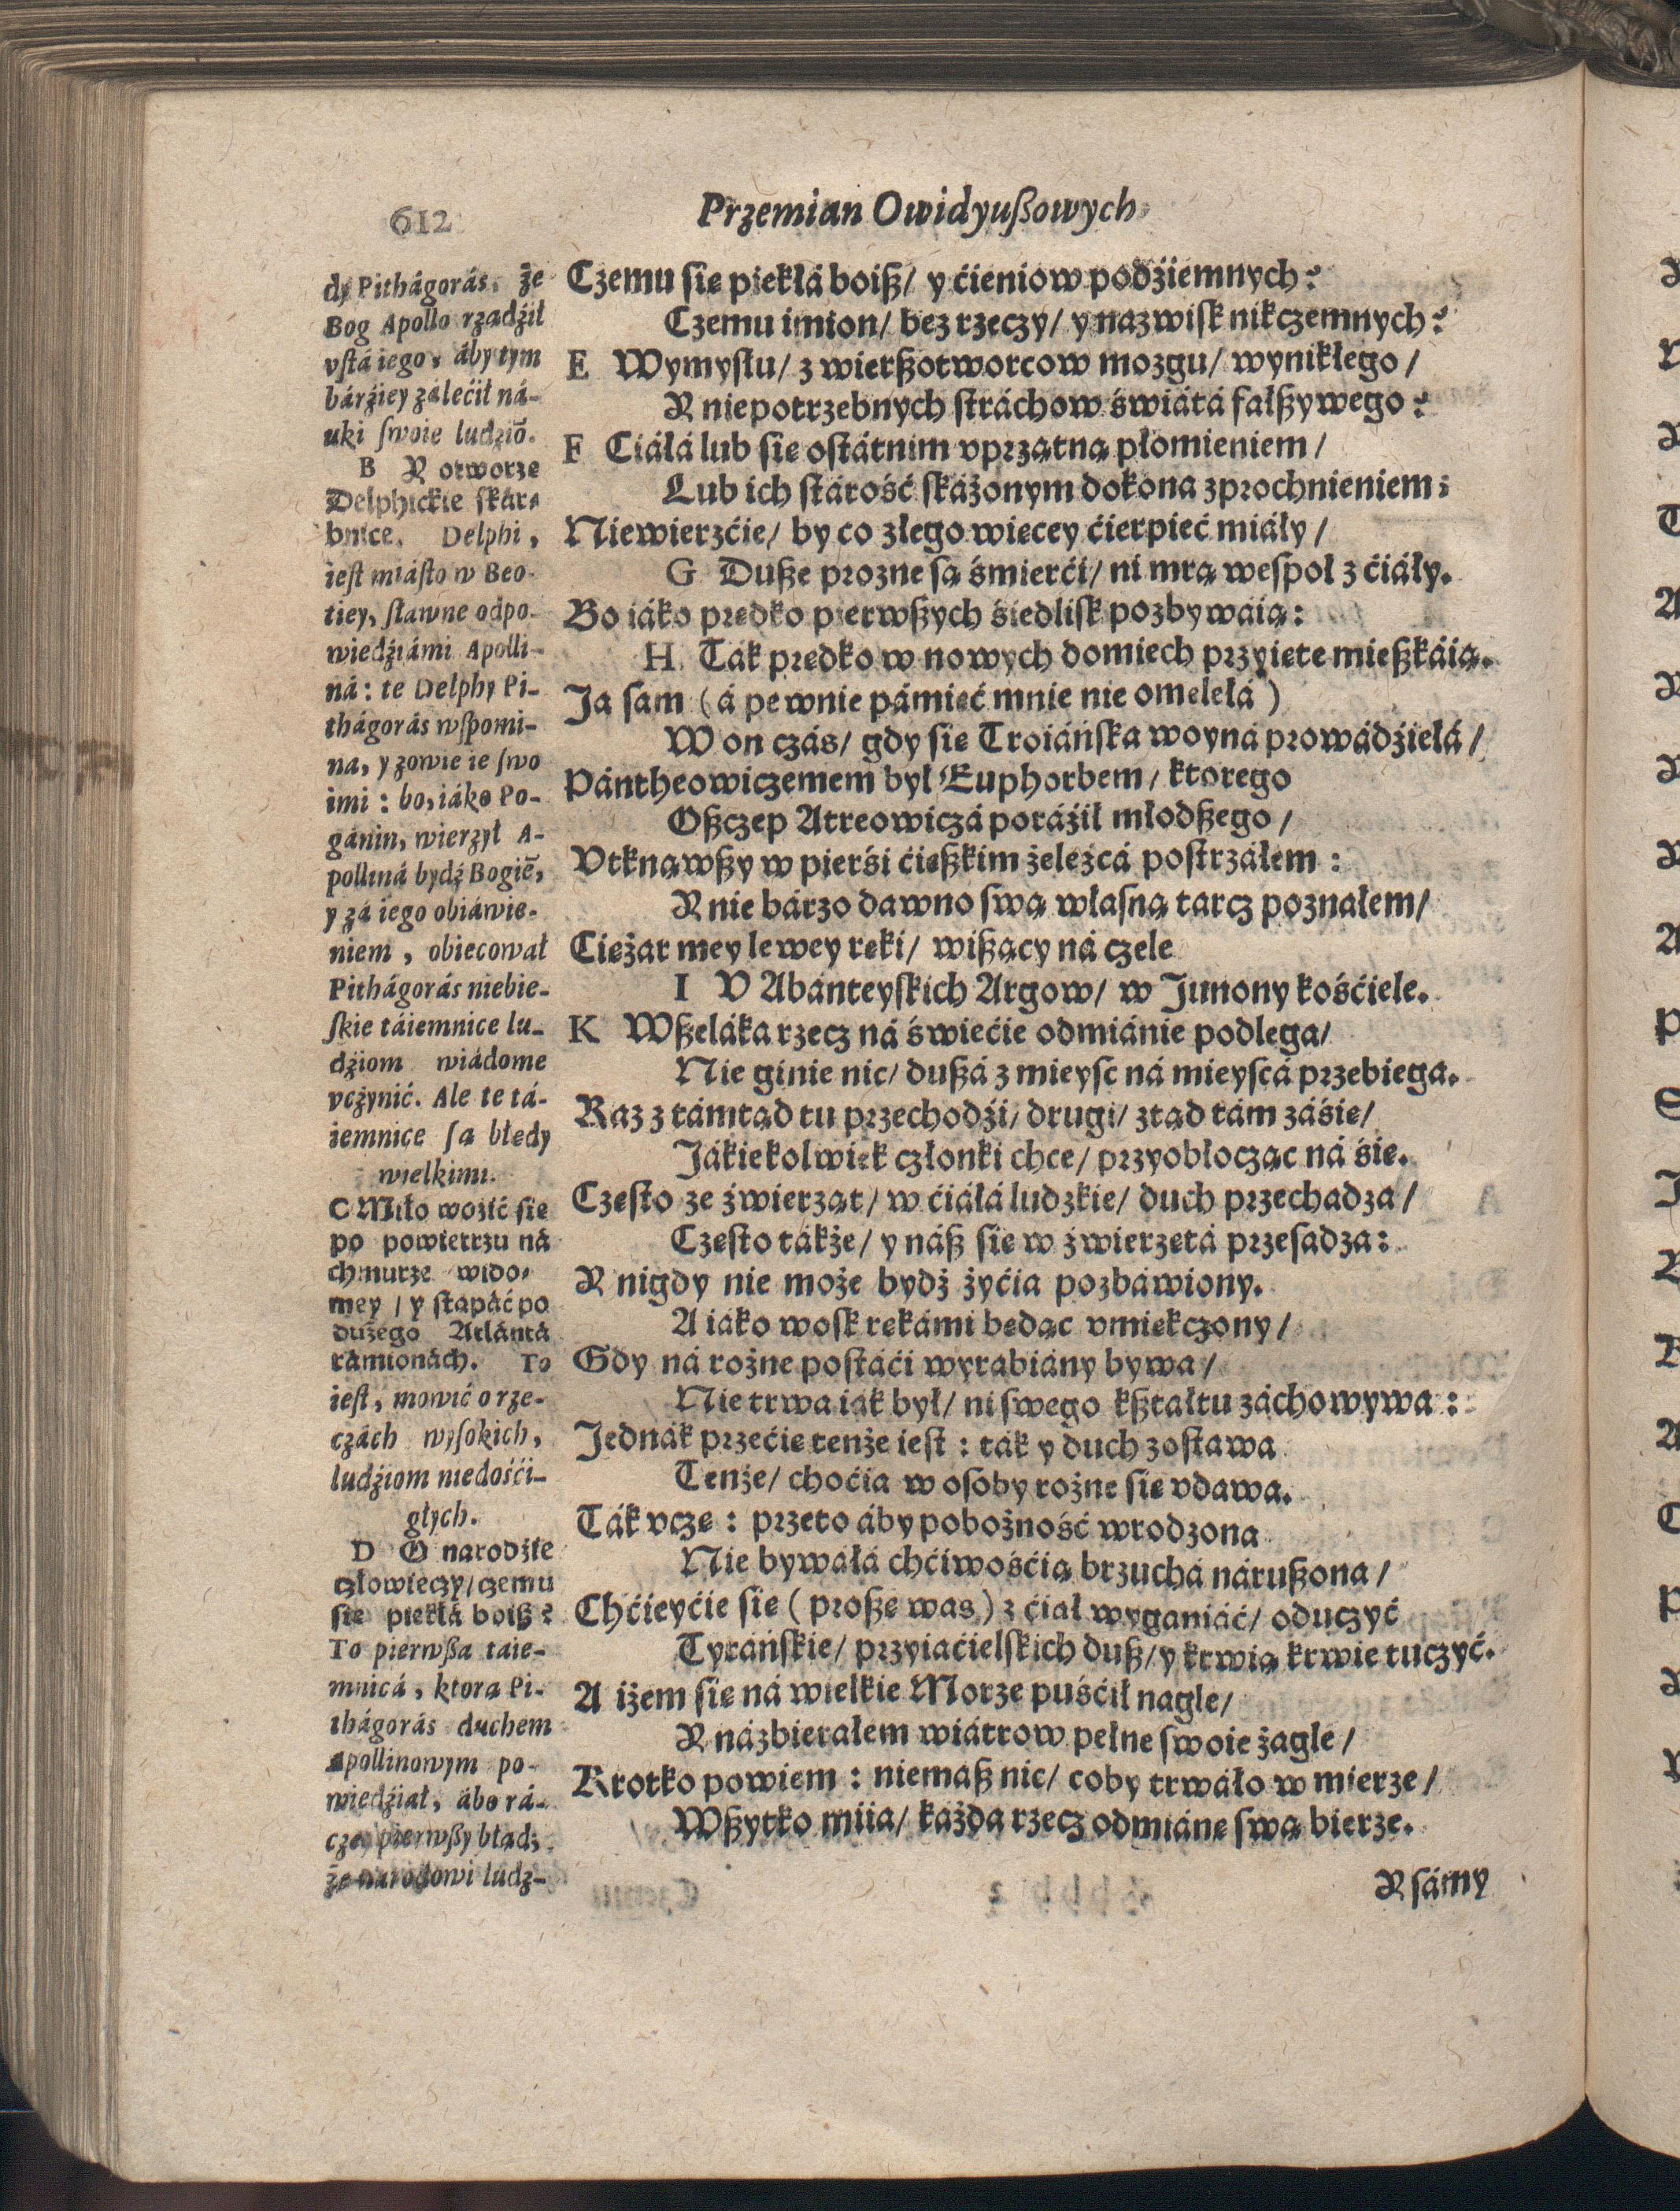 612
Przemian Owidyußowych
dy Pithágorás, że
Bog Apollo rządźił
vſtá iego, áby tym
bárźiey zálećił ná-
uki ſwoie ludziō.
B Y otworze
Delphickie ſkár-
bnice. Delphi,
ieſt miáſto w Beo-
tiey, ſławne odpo-
wiedźiámi Apolli-
ná: te Delphy Pi-
thágorás wſpomi-
na, y zowie ie ſwo
imi: bo, iáko Po-
gánin, wierzył A-
polliná bydź Bogiē,
y zá iego obiáwie-
niem, obiecował
Pithágorás niebie-
ſkie táiemnice lu-
dźiom wiádome
vczynić. Ale te tá-
iemnice ſą błędy
wielkimi.
C Miło woźić ſie
po powietrzu ná
chmurze wido-
mey / y ſtąpáć po
dużego Atlántá
rámionách. To
ieſt, mowić o rze-
czách wyſokich,
ludźiom niedośći-
głych.
D O narodźie
człowieczy / czemu
ſie piekłá boiß?
To pierwßa táie-
mnicá, ktorą Pi-
thágorás duchem
Apollinowym po-
wiedźiał, ábo rá-
czey pierwßy błąd;
że narodowi ludz-
Czemu ſie piekłá boiß / y ćieniow podźiemnych?
Czemu imion / bez rzeczy / y nazwiſk nikczemnych?
E Wymyſłu / z wierßotworcow mozgu / wynikłego /
Y niepotrzebnych ſtráchow świátá fałßywego?
F Ciáłá lub ſie oſtátnim vprzątną płomieniem /
Lub ich ſtárość ſkáżonym dokona zprochnieniem;
Niewierzćie / by co złego więcey ćierpieć miáły /
G Duße prozne ſą śmierći / ni mrą weſpoł z ćiáły.
Bo iáko prędko pierwßych śiedliſk pozbywáią:
H Ták prędko w nowych domiech przyięte mießkáią.
Ja ſam (á pewnie pámięć mnie nie omelełá)
W on czás / gdy ſie Troiáńſka woyná prowádźiełá /
Pántheowiczemem był Euphorbem / ktorego
Oßczep Atreowiczá poráźił młodßego /
Vtknąwßy w pierśi ćießkim żeleżcá poſtrzáłem:
Y nie bárzo dawno ſwą właſną tarcz poznałem /
Ciężar mey lewey ręki / wißący ná czele
I V Abánteyſkich Argow / w Junony kośćiele.
K Wßeláka rzecz ná świećie odmiánie podlega /
Nie ginie nic / dußá z mieyſc ná mieyſcá przebiega.
Raz z támtąd tu przechodźi / drugi / ztąd tám záśię /
Jákiekolwiek członki chce / przyobłocząc ná śię.
Częſto ze źwierząt / w ćiáłá ludzkie / duch przechadza /
Częſto tákże / y náß ſie w źwierzętá przeſadza:
Y nigdy nie może bydź żyćia pozbáwiony.
A iáko woſk rękámi będąc vmiękczony /
Gdy ná rożne poſtáći wyrabiány bywa /
Nie trwa iák był / ni ſwego kßtałtu záchowywa:
Jednák przećię tenże ieſt: ták y duch zoſtawa
Tenże / choćia w oſoby rożne ſie vdawa.
Ták vczę: przeto áby pobożność wrodzona
Nie bywáłá chćiwośćią brzuchá nárußona /
Chćieyćie ſie (proßę was) z ćiał wyganiáć / oduczyć
Tyráńſkie / przyiaćielſkich duß / y krwią krwie tuczyć.
A iżem ſie ná wielkie Morze puśćił nagle /
Y názbierałem wiátrow pełne ſwoie żagle /
Krotko powiem: niemáß nic / coby trwáło w mierze /
Wßytko miia / każda rzecz odmiánę ſwą bierze.
Y ſámy